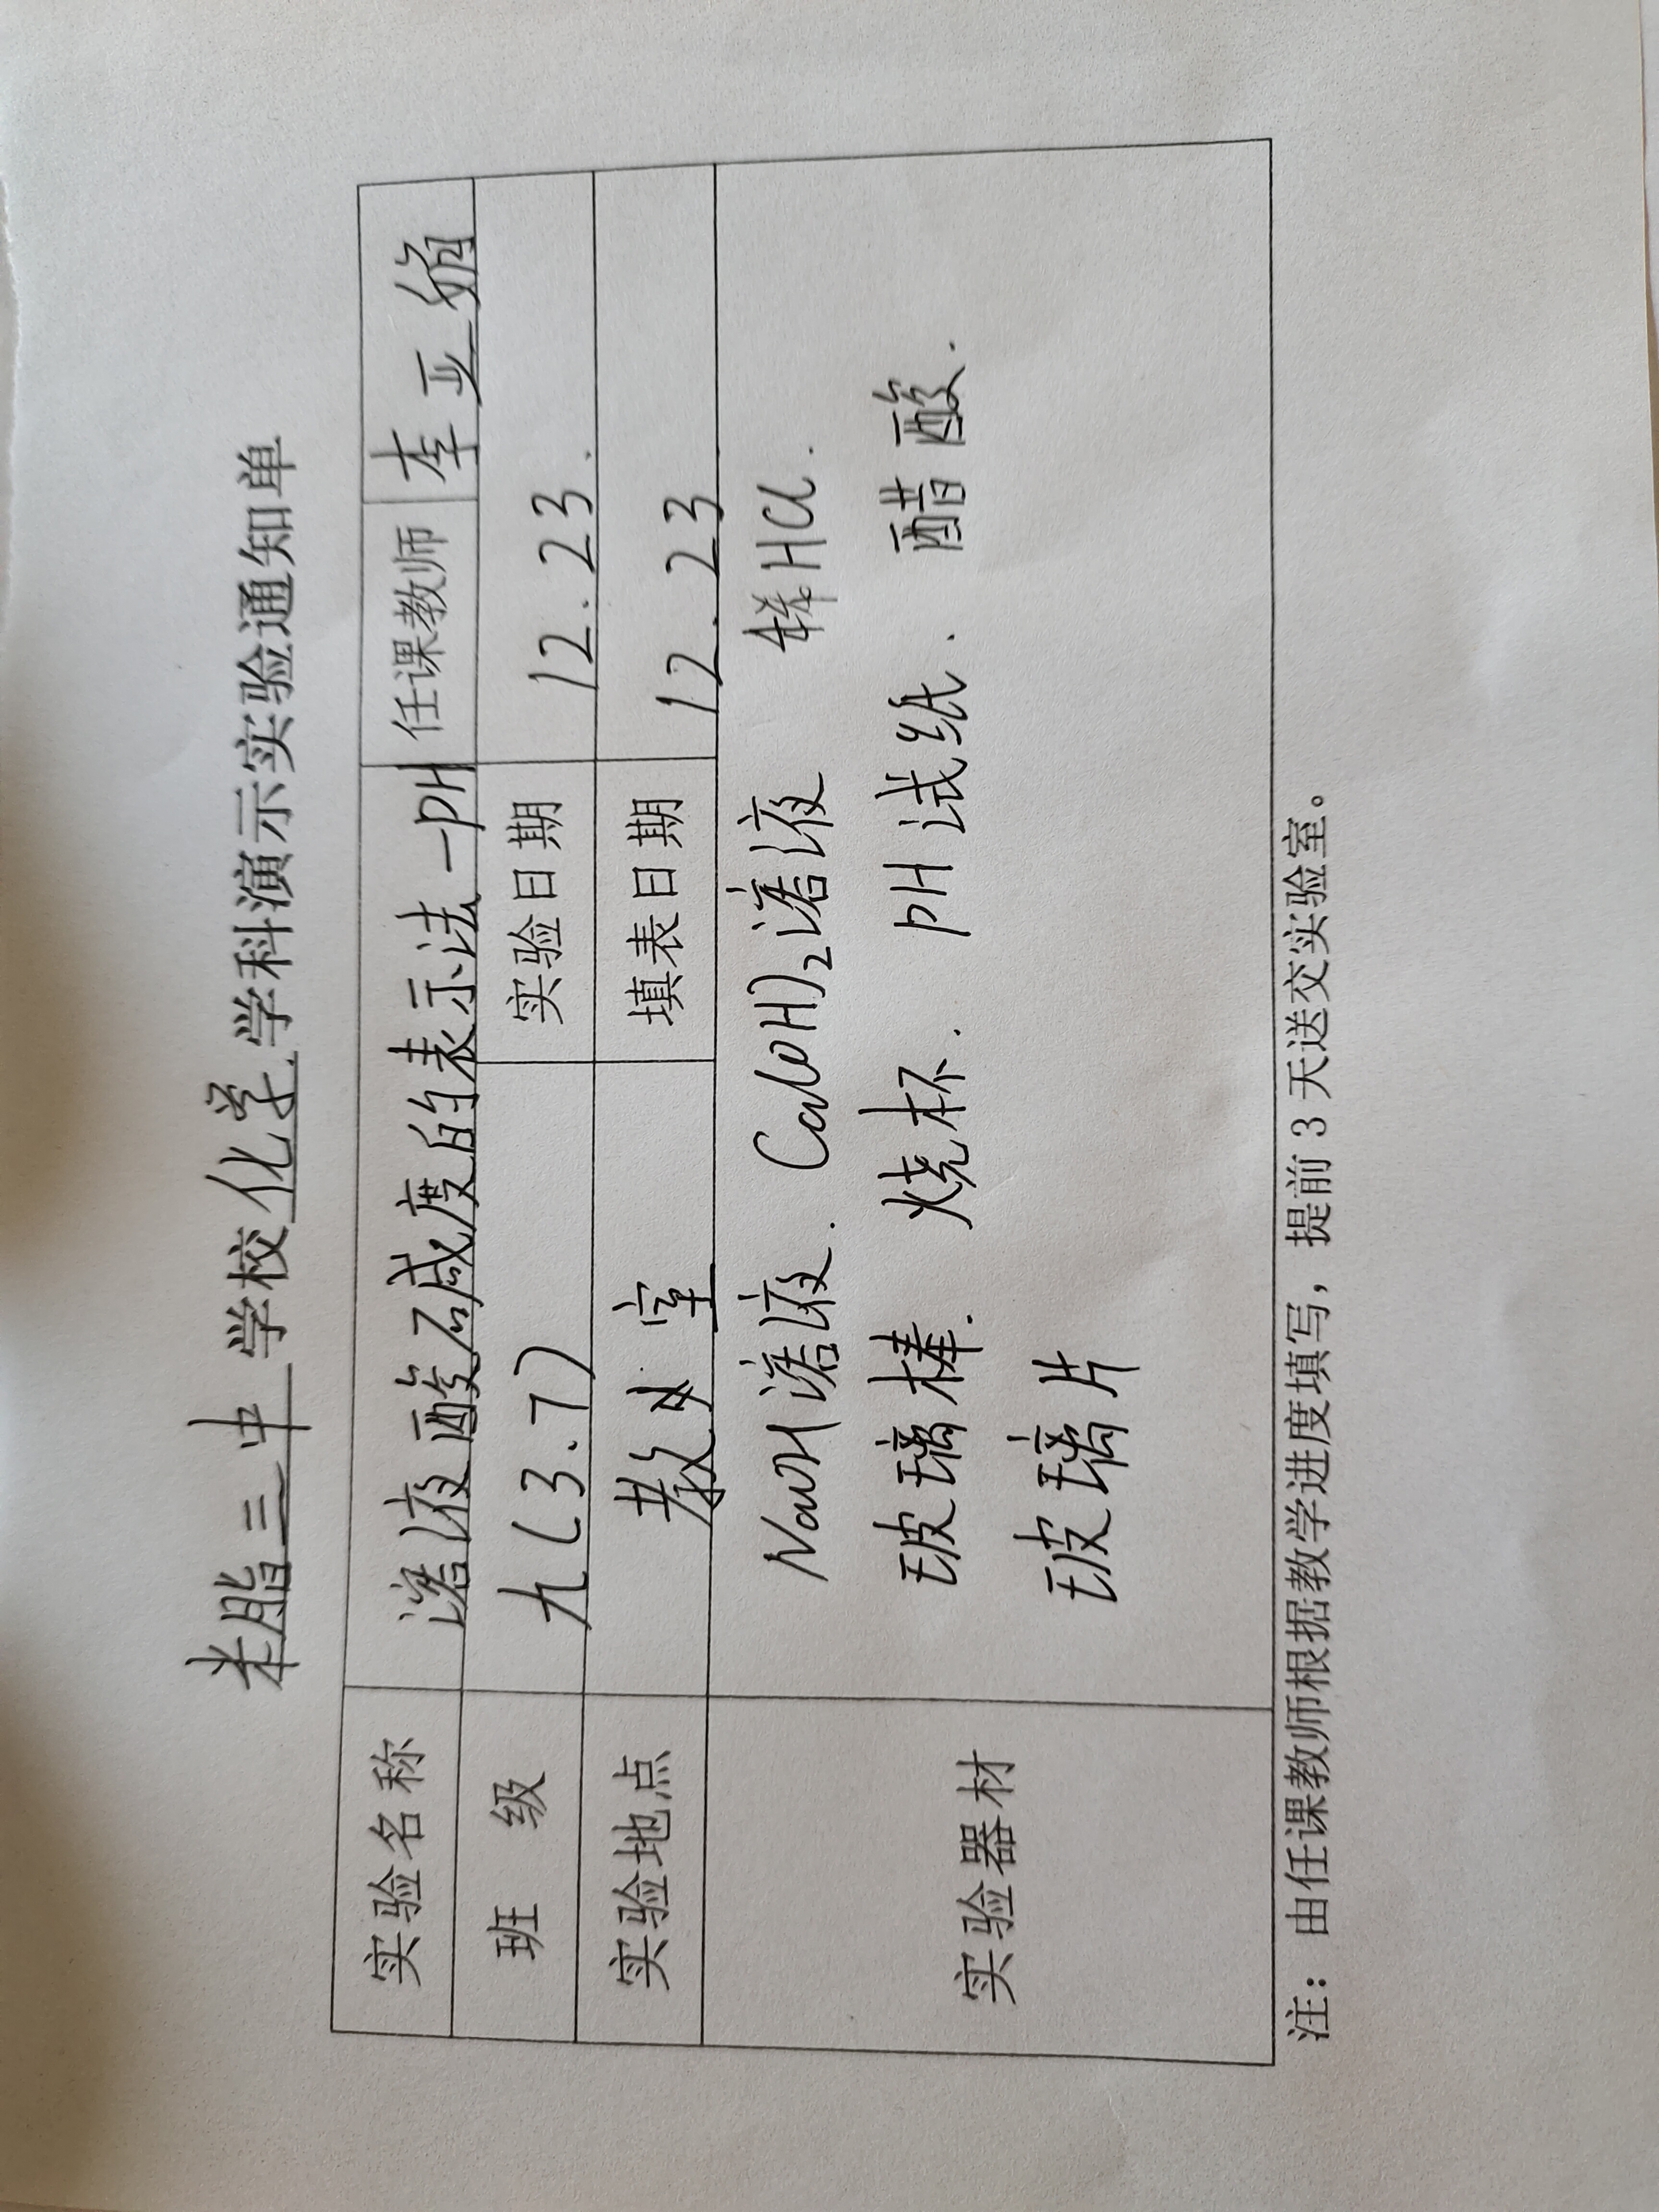 米脂三中学校化学学科演示实验通知单
实验名称 溶液酸碱度的表示法—pH 任课教师 李亚娟
班 级 九(3.7) 实验日期 12.23.
实验地点 教室 填表日期 12.23
实验器材
NaOH溶液. Ca(OH)2溶液 稀HCl.
玻璃棒. 烧杯. pH试纸. 醋酸.
玻璃片
注：由任课教师根据教学进度填写，提前3天送交实验室。